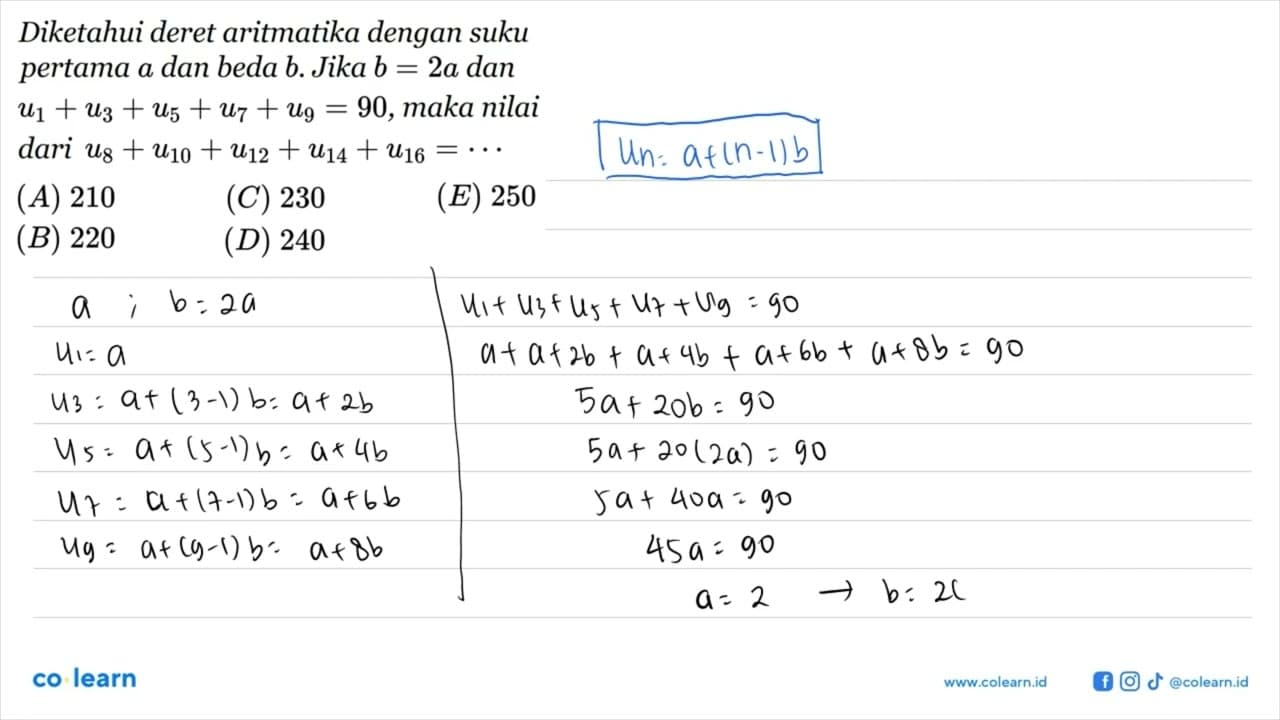 Diketahui deret aritmatika dengan suku
pertama a dan beda b. Jika b = 2a dan
u₁ + u₃ + u₅ + u₇ + u₉ = 90, maka nilai
dari u₈ + u₁₀ + u₁₂ + u₁₄ + u₁₆ = ⋯
(A) 210 (C) 230 (E) 250
(B) 220 (D) 240
Un = a+(n-1)b
a ; b = 2a
u₁ = a
u₃ = a+(3-1)b = a+2b
u₅ = a+(5-1)b = a+4b
u₇ = a+(7-1)b = a+6b
u₉ = a+(9-1)b = a+8b
u₁+u₃+u₅+u₇+u₉ = 90
a+a+2b+a+4b+a+6b+a+8b = 90
5a+20b = 90
5a+20(2a) = 90
5a+40a = 90
45a = 90
a = 2 → b = 2(
co learn
www.colearn.id
@colearn.id